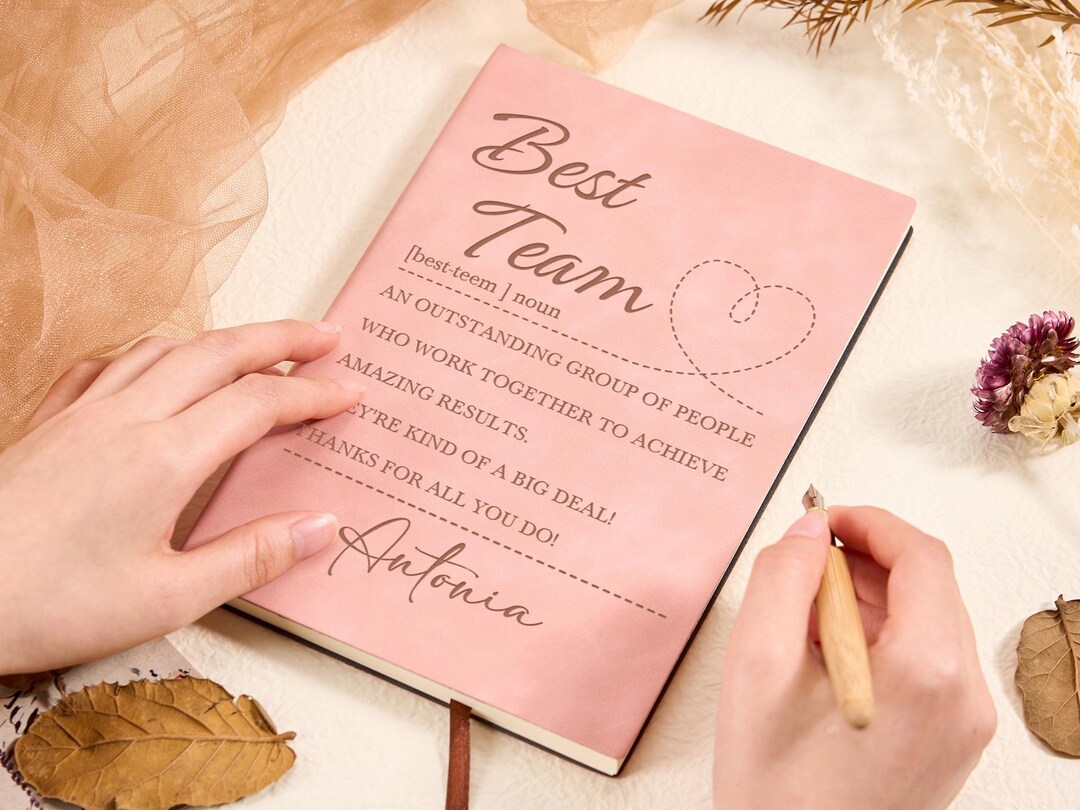 Best
Team
[best-teem ] noun
AN OUTSTANDING GROUP OF PEOPLE
WHO WORK TOGETHER TO ACHIEVE
AMAZING RESULTS.
EY'RE KIND OF A BIG DEAL!
THANKS FOR ALL YOU DO!
Antonia